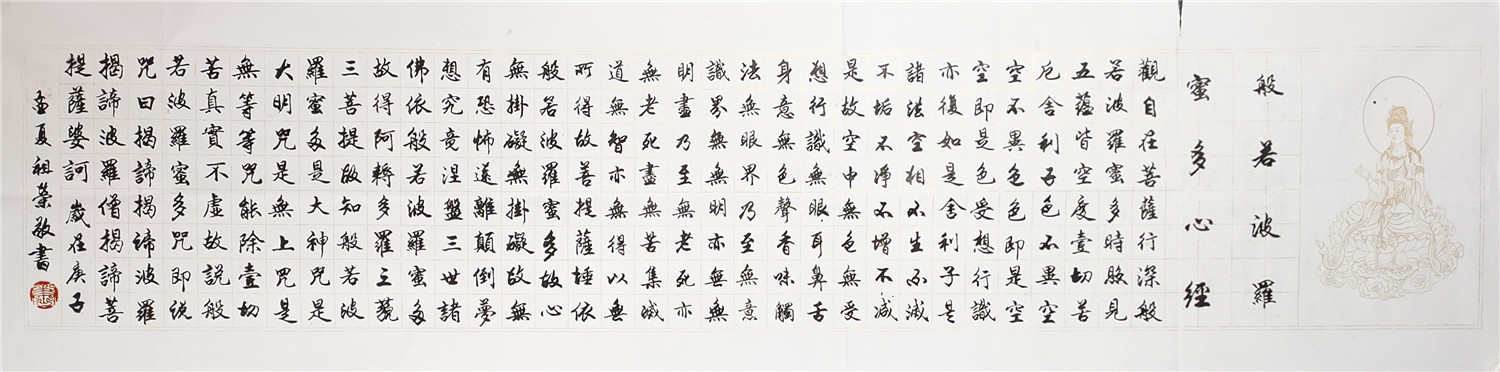 般若波羅
蜜多心經
觀自在菩薩行深般
若波羅蜜多時照見
五蘊皆空度壹切苦
厄舍利子色不異空
空不異色色即是空
空即是色受想行識
亦復如是舍利子是
諸法空相不生不滅
不垢不淨不增不減
是故空中無色無受
想行識無眼耳鼻舌
身意無色聲香味觸
法無眼界乃至無意
識界無無明亦無無
明盡乃至無老死亦
無老死盡無苦集滅
道無智亦無得以無
所得故菩提薩埵依
般若波羅蜜多故心
無掛礙無掛礙故無
有恐怖遠離顛倒夢
想究竟涅盤三世諸
佛依般若波羅蜜多
故得阿耨多羅三藐
三菩提故知般若波
羅蜜多是大神咒是
大明咒是無上咒是
無等等咒能除壹切
苦真實不虛故說般
若波羅蜜多咒即說
咒曰揭諦揭諦波羅
揭諦波羅僧揭諦菩
提薩婆訶 歲在庚子
孟夏祖榮敬書